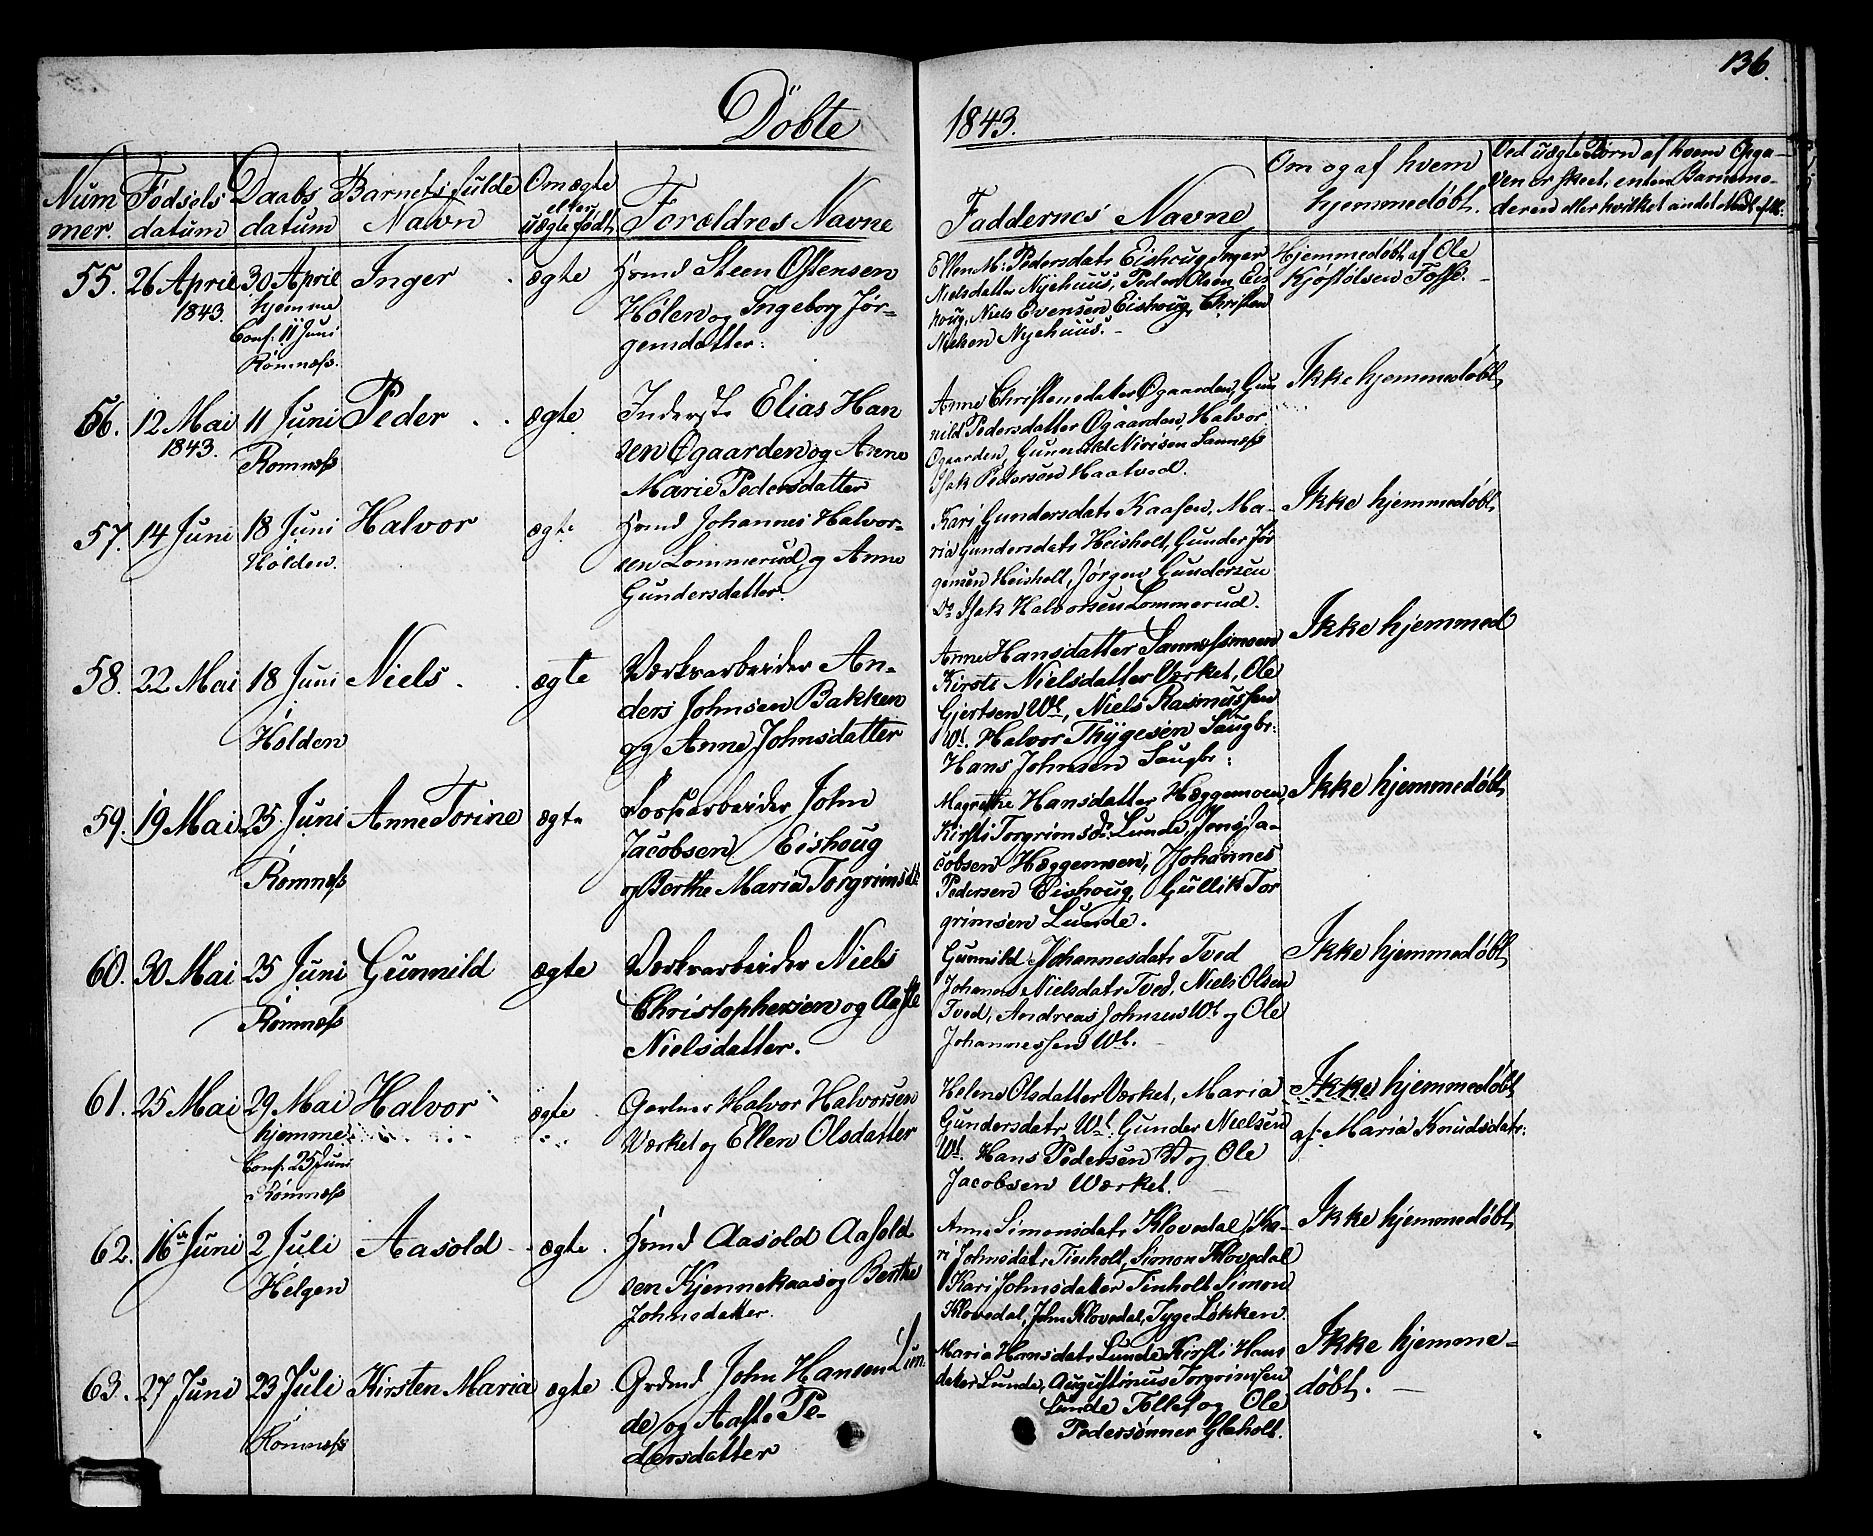 136.
Döbte 1843.
Num
mer.
Fødsels
datum
Daabs
datum
Barnets fulde
Navn
Om ægte
eller
uægte født
Forældres Navne
Faddernes Navne
Om og af hvem
hjemmedøbt.
Ved uægte Börn af hvem Opga-
ven er skeet, enten Barnemo-
deren eller hvilket andet
55. 26 April 30 April Inger ægte
1843. hjemme
Conf. 11 Juni
Romnæss.
Grmd Steen Ostensen
Hølen og Ingeborg Jør-
gensdatter.
Ellen M: Pedersdatr Eishoug, Inger
Nielsdatter Nyehuus, Peder Olsen Eis
houg, Niels Evensen Eishoug, Christen
Nielsen Nyehuus.
Hjemmedøbt af Ole
Kjøstolsen
56. 12 Mai 11 Juni Peder ægte
1843. Romnæss
Inderste Elias Han
sen Øgaarden og Anne
Marie Pedersdatter
Anne Christensdatter Øgaarden, Gun
nild Pedersdatter Øgaarden, Halvor
Øgaarden, Sannæss
Isak Pedersen Haatved.
Ikke hjemmedøbt
57. 14 Juni 18 Juni Halvor ægte
Holden.
Grmd Johannes Halvor-
sen Lommerud og Anne
Gundersdatter.
Kari Gundersdatr Kaasen, Ma-
ria Gundersdatr Heisholt, Gunder Jør
gensen Heisholt, Jørgen Gundersen
Do Isak Halvorsen Lommerud.
Ikke hjemmedøbt
58. 22 Mai 18 Juni Niels ægte
Holden
Værksarbeider An-
ders Johnsen Bakken
og Anne Johnsdatter
Anne Hansdatter Sannessmoen
Kirsti Nielsdatter Værket, Ole
Gjertsen Wt, Niels Rasmussen
Wt. Halvor Thygesen Saugbr:
Hans Johnsen Saugbr:
Ikke hjemmed
59. 19 Mai 25 Juni Anne Torine ægte
Romnæss
John
Jacobsen Eishoug
og Berthe Maria Torgrimsd
Magrethe Hansdatter Hæggemoen,
Kirsti Torgrimsd. Lunde, Jens Ja-
cobsen Hæggemoen, Johannes
Pedersen Eishoug, Gullik Tor
grimsen Lunde.
Ikke hjemmedøbt
60. 30 Mai 25 Juni Gunnild ægte
Romnæss
Værksarbeider Niels
Christophersen og Aaste
Nielsdatter.
Gunnild Johannesdatr Tved
Johanne Nielsdatr Tved, Niels Olsen
Tved, Andreas Johnsen Wt og Ole
Johannessen Wt.
Ikke hjemmedøbt
61. 25 Mai 29 Mai Halvor ægte
hjemme
Conf. 25 Juni
Romnæss
Gartner Halvor Halvorsen
Værket og Ellen Olsdatter
Helene Olsdatter Værket, Maria
Gundersdatr Wt. Gunder Nielsen
Wt. Hans Pedersen Wt og Ole
Jacobsen Værket.
Ikke hjemmedøbt
af Maria Knudsdatr:
62. 16 Juni 2 Juli Aasold ægte
Helgen
Grmd Aasold Aasold
sen Kjennekaas og Berthe
Johnsdatter.
Anne Simonsdatr Klovedal, Ka-
ri Johnsdatr Tinholt, Simon Klovedal
Kari Johnsdatter Tinholt Simon
Klovedal, John Klovedal, Tyge Løkken.
Ikke hjemmedøbt
63. 27 Juni 23 Juli Kirsten Maria ægte
Romnæss
Grdmd John Hansen Lun
de og Aaste Pe-
dersdatter
Maria Hansdatr Lunde, Kirsti Hans
datter Lunde, Augustinus Torgrimsen
Lunde Tollef og Ole
Pedersønner Glaholt.
Ikke hjemme-
døbt.